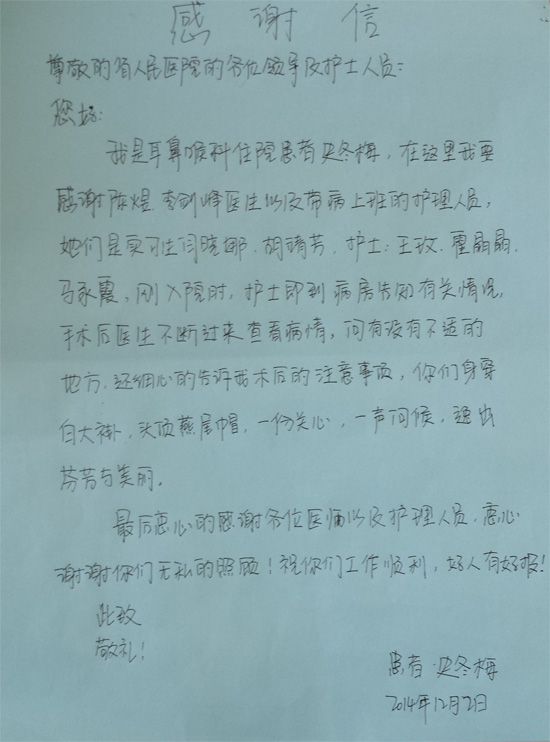 感谢信
尊敬的省人民医院的各位领导及护士人员:
您好:
我是耳鼻喉科住院患者史冬梅,在这里我要
感谢陈煜、李剑峰医生以及带病上班的护理人员,
她们是实习生闫晓娜、胡靖芳、护士:王玫、翟晶晶、
马永霞,刚入院时,护士即到病房告知有关情况,
手术后医生不断过来查看病情,问有没有不适的
地方.还细心的告诉我术后的注意事项,你们身穿
白大褂,头顶燕尾帽,一份关心,一声问候,透出
芬芳与美丽。
最后忠心的感谢各位医师以及护理人员.忠心
谢谢你们无私的照顾!祝你们工作顺利,好人有好报!
此致
敬礼!
患者:史冬梅
2014年12月2日